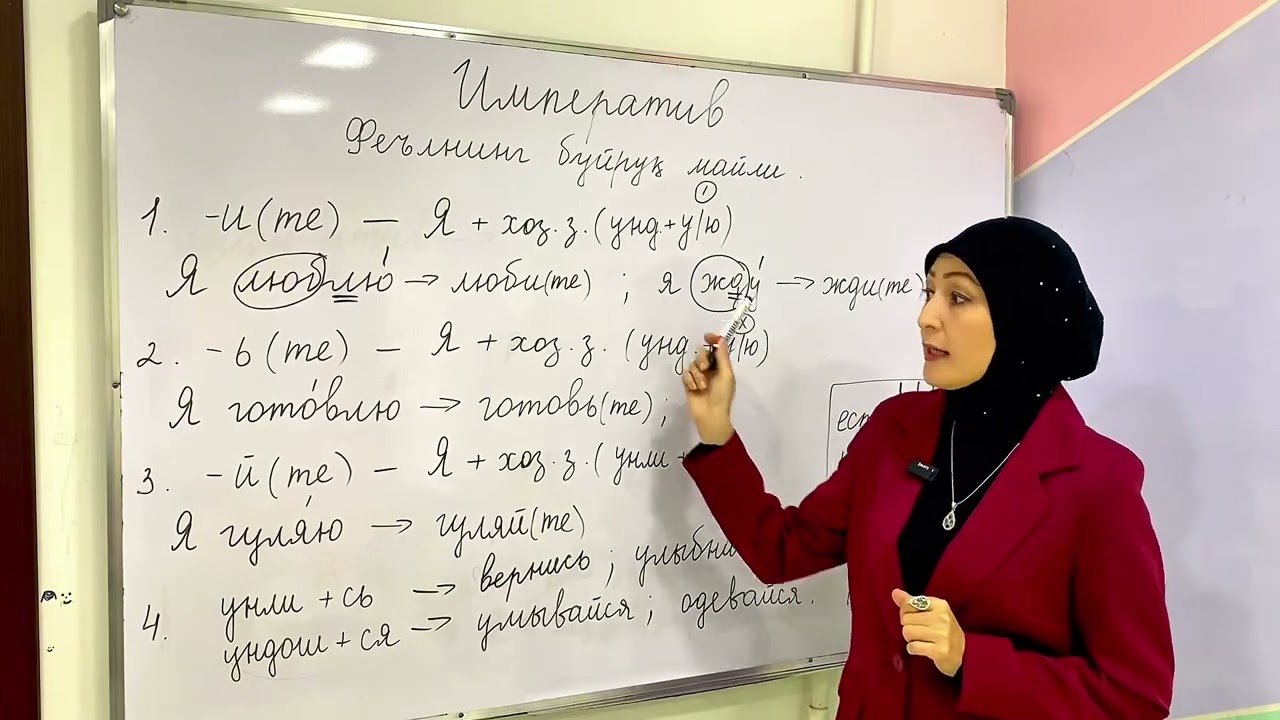 Императив
Феълнинг буйруқ майли.
①
1. -и(те) — Я + хоз.з.(унд.+у/ю)
Я люблю́ → люби(те) ; я жду́ → жди(те)
2. -ь(те) — Я + хоз.з. (унд. /ю)
Я гото́влю → готовь(те);
3. -й(те) — Я + хоз.з.(унли +
Я гуля́ю → гуляй(те)
4. унли + сь → вернись ; улыбни
ундош + ся → умывайся ; одевайся.
ест